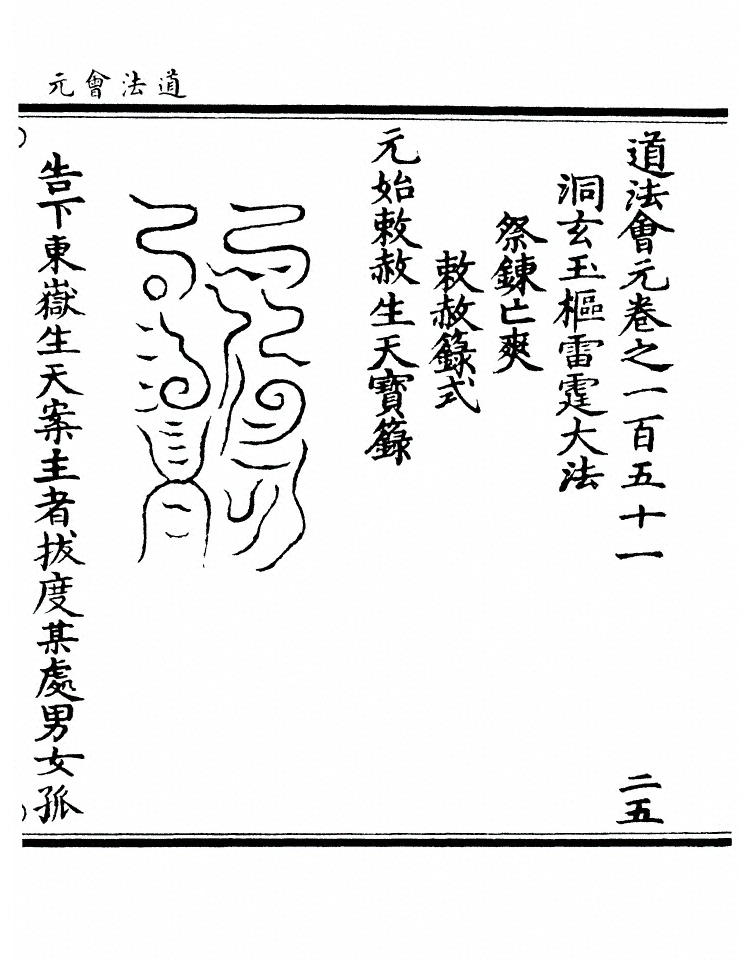 道法會元
道法會元卷之一百五十一
二五
洞玄玉樞雷霆大法
祭鍊亡爽
敕赦籙式
元始敕赦生天寶籙
告下東嶽生天案主者拔度某處男女孤